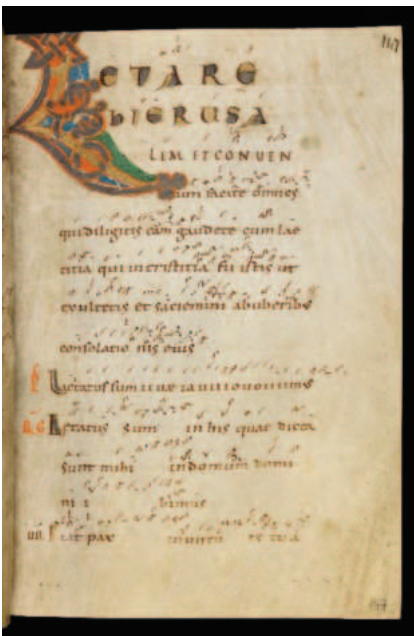 LETARE
hIERUSA
LEM ET CONUEN
tum facite omnes
qui diligitis eam gaudete cum lae
titia qui in tristitia fu istis ut
exultetis et saciemini ab uberibus
consolatio nis
Laetatus sum
Laetatus sum in his quae dicta
sunt mihi in domum domi
ni i bimus
Fiat pax in uirtu te tua